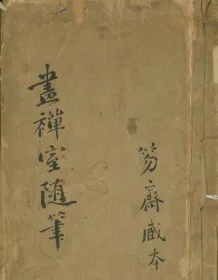 畫禪室随筆
笏齋藏本